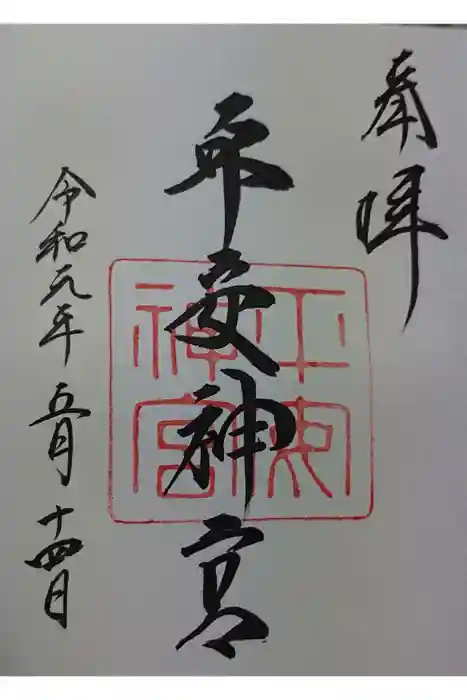 奉拝
平安神宮
平安神宮
令和元年五月十四日